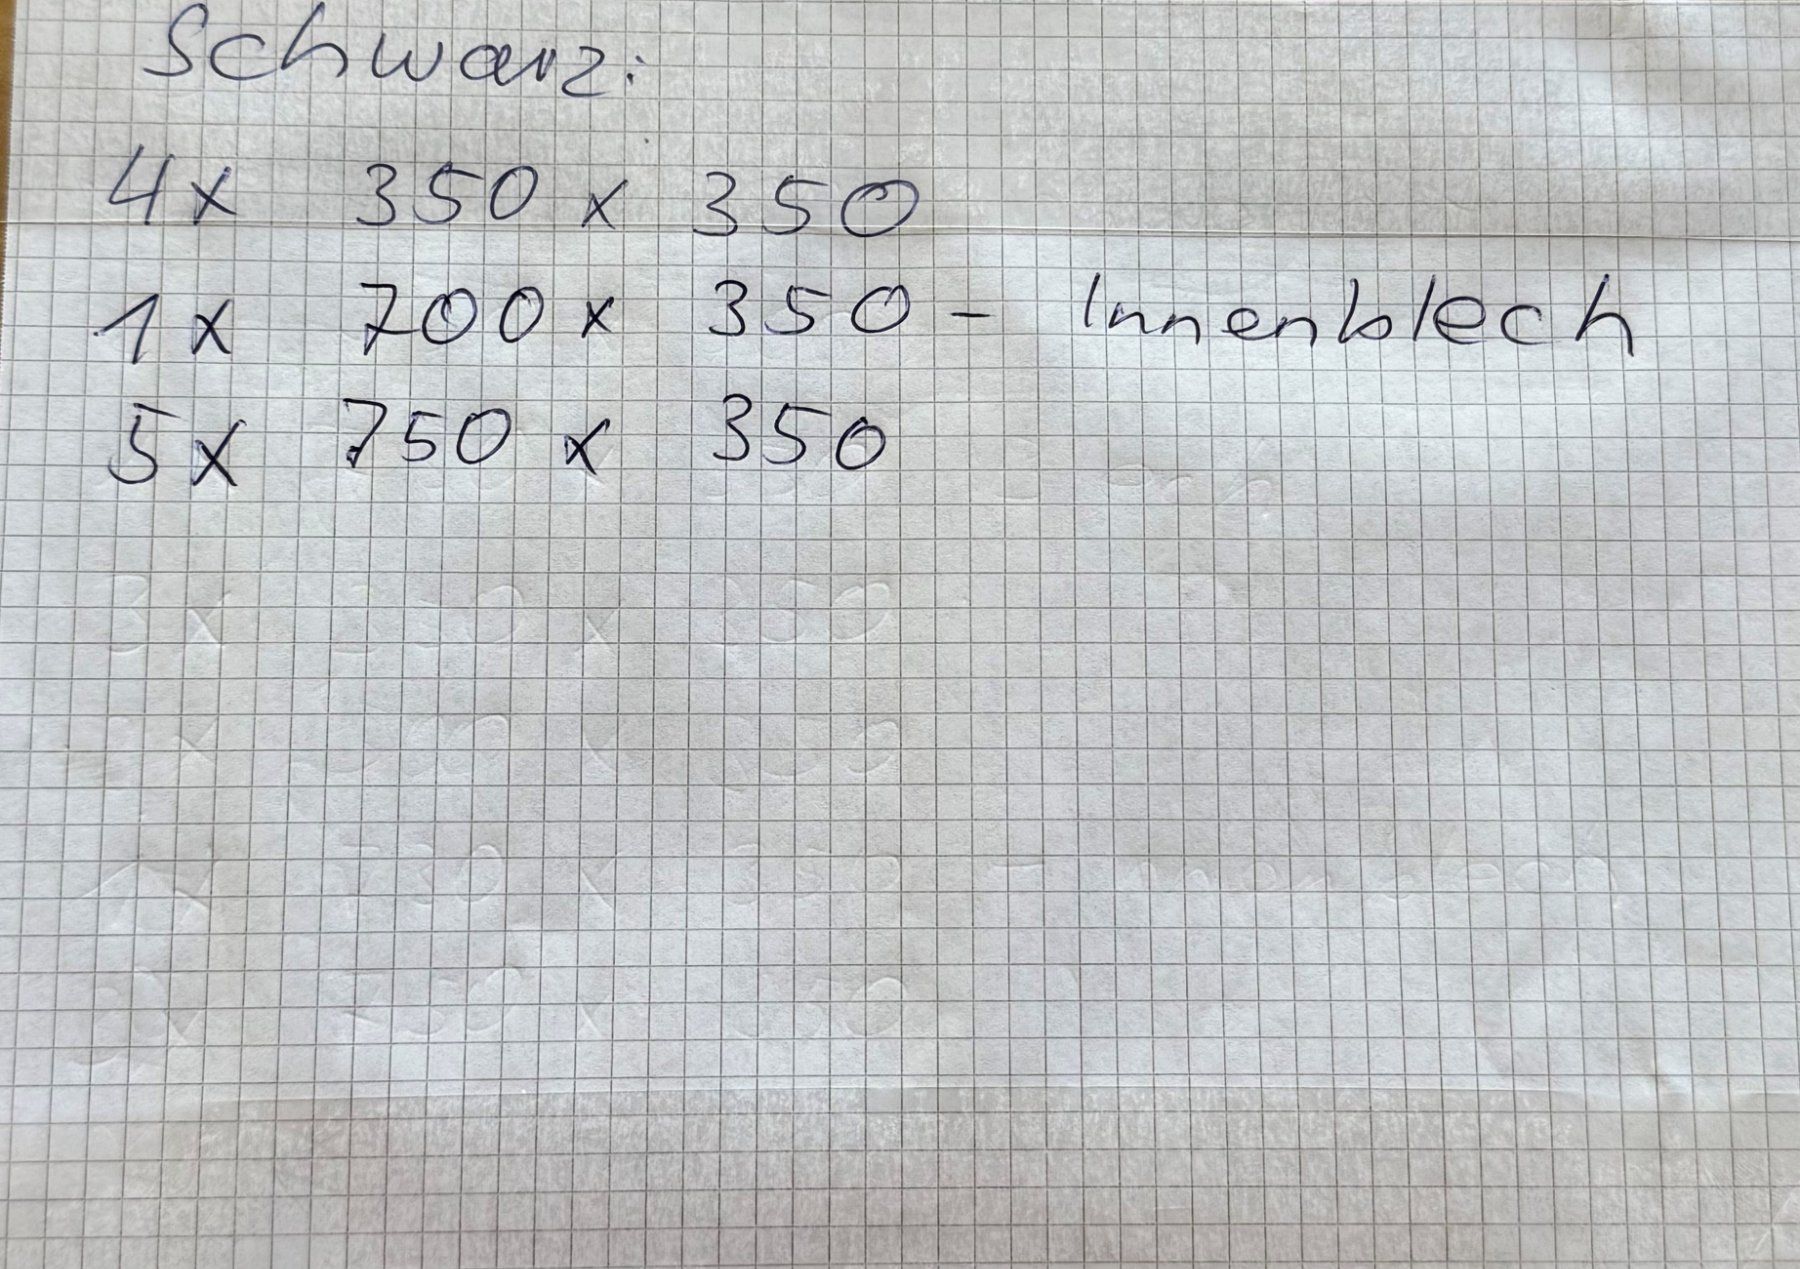 Schwarz:
4x 350 x 350
1x 700 x 350 - Innenblech
5x 750 x 350